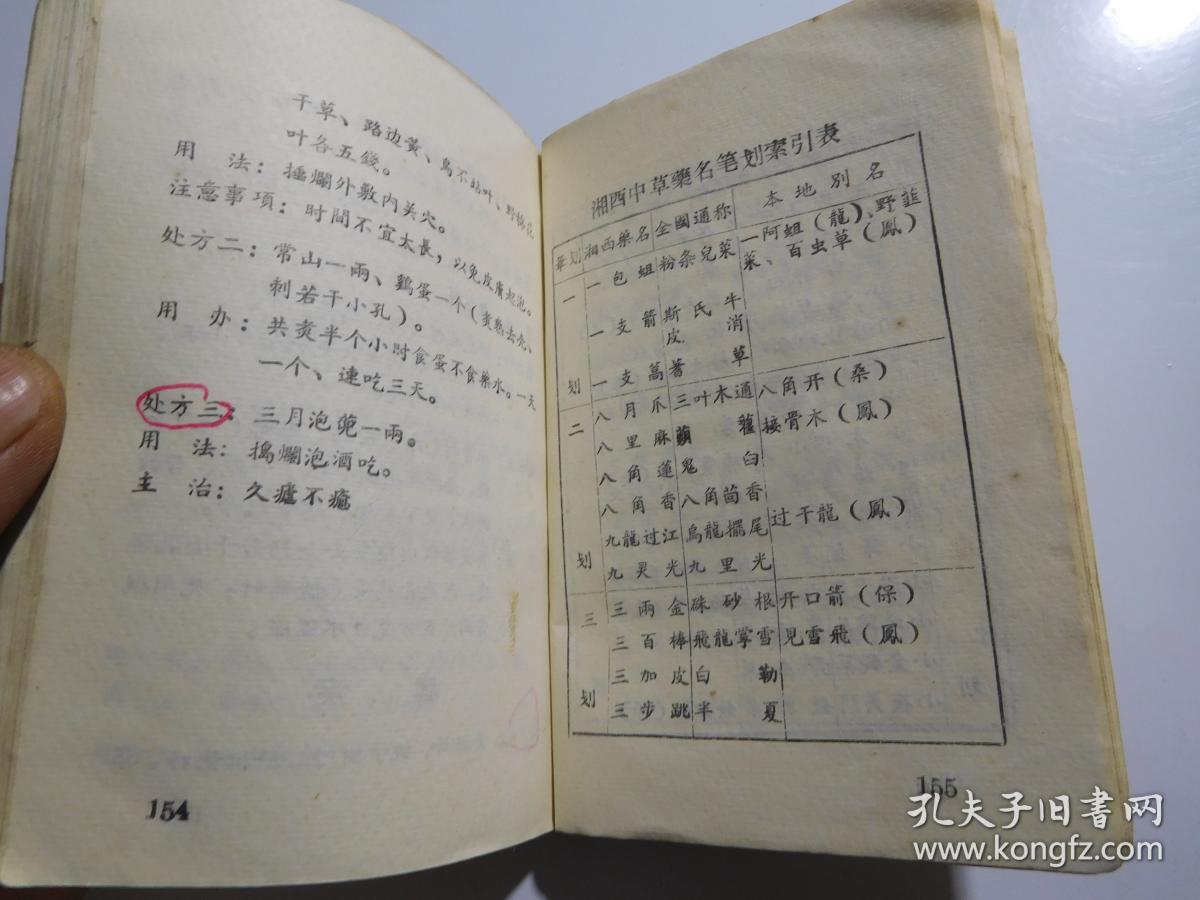 干草、路边黃、鳥不站叶、野棉花
叶各五錢。
用　法：捶爛外敷內关穴。
注意事項：时間不宜太長，以免皮膚起泡。
处方二：常山一兩、鷄蛋一个（煮熟去壳、
刺若干小孔）。
用　办：共煮半个小时食蛋不食藥水。一天
一个、連吃三天。
处方三：三月泡蔸一兩。
用　法：搗爛泡酒吃。
主　治：久瘧不癒
154
湘西中草藥名笔划索引表
筆划 湘西藥名 全國通称 本地別名
一划 一包蛆 粉条兒菜 一阿蛆（龍）、野韮菜、百虫草（鳳）
一支箭 斯氏牛皮消
一支蒿 蓍草
二划 八月爪 三叶木通 八角开（桑）
八里麻 蒴藋 接骨木（鳳）
八角蓮 鬼臼
八角香 八角茴香
九龍过江 烏龍擺尾 过干龍（鳳）
九灵光 九里光
三划 三兩金 硃砂根 开口箭（保）
三百棒 飛龍掌雪 見雪飛（鳳）
三加皮 白勒
三步跳 半夏
155
孔夫子旧书网
www.kongfz.com